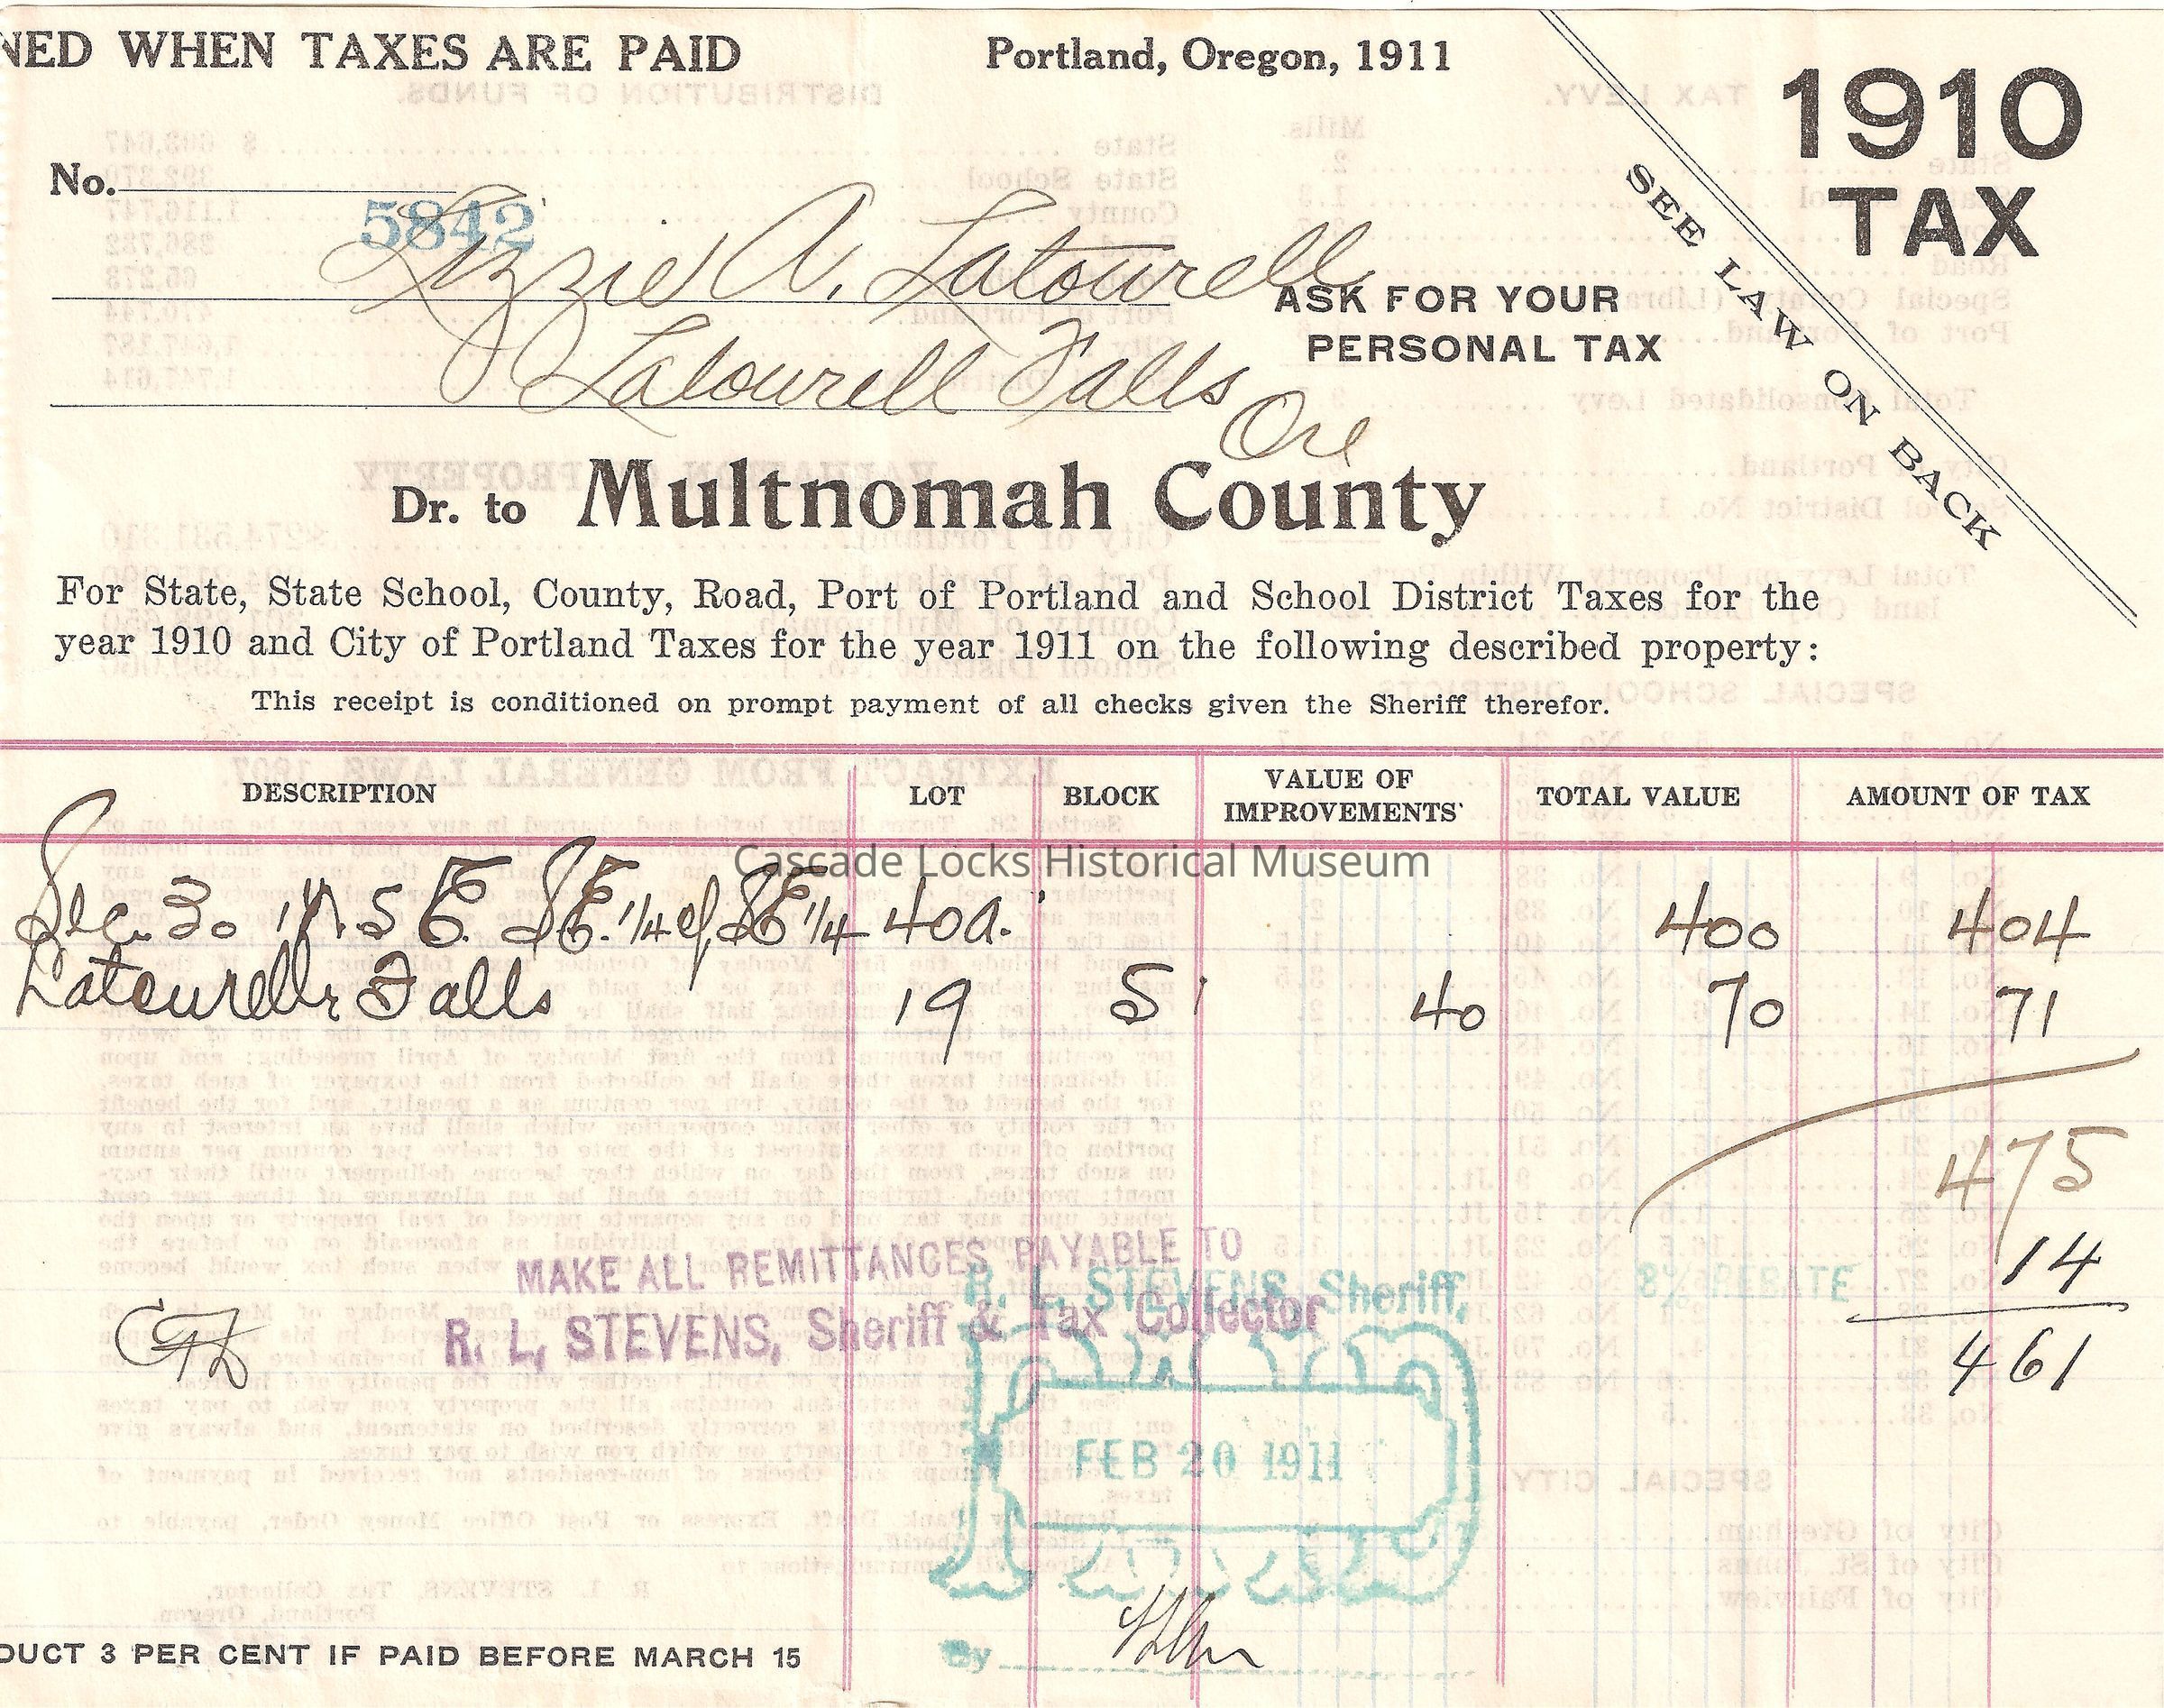 NED WHEN TAXES ARE PAID
Portland, Oregon, 1911
1910
TAX
SEE LAW ON BACK
No.
5842
Lizzie A. Latourell
ASK FOR YOUR
PERSONAL TAX
Latourell Falls
Ore
Dr. to Multnomah County
For State, State School, County, Road, Port of Portland and School District Taxes for the
year 1910 and City of Portland Taxes for the year 1911 on the following described property:
This receipt is conditioned on prompt payment of all checks given the Sheriff therefor.
DESCRIPTION LOT BLOCK VALUE OF IMPROVEMENTS TOTAL VALUE AMOUNT OF TAX
Cascade Locks Historical Museum
Sec. 30 1N 5 E. SE. 1/4 of SE 1/4 40a. 400 404
Latourell Falls 19 5 40 70 71
475
MAKE ALL REMITTANCES PAYABLE TO
R. L. STEVENS, Sheriff & Tax Collector
R. L. STEVENS, Sheriff,
3% REBATE 14
461
FEB 20 1911
By
DUCT 3 PER CENT IF PAID BEFORE MARCH 15